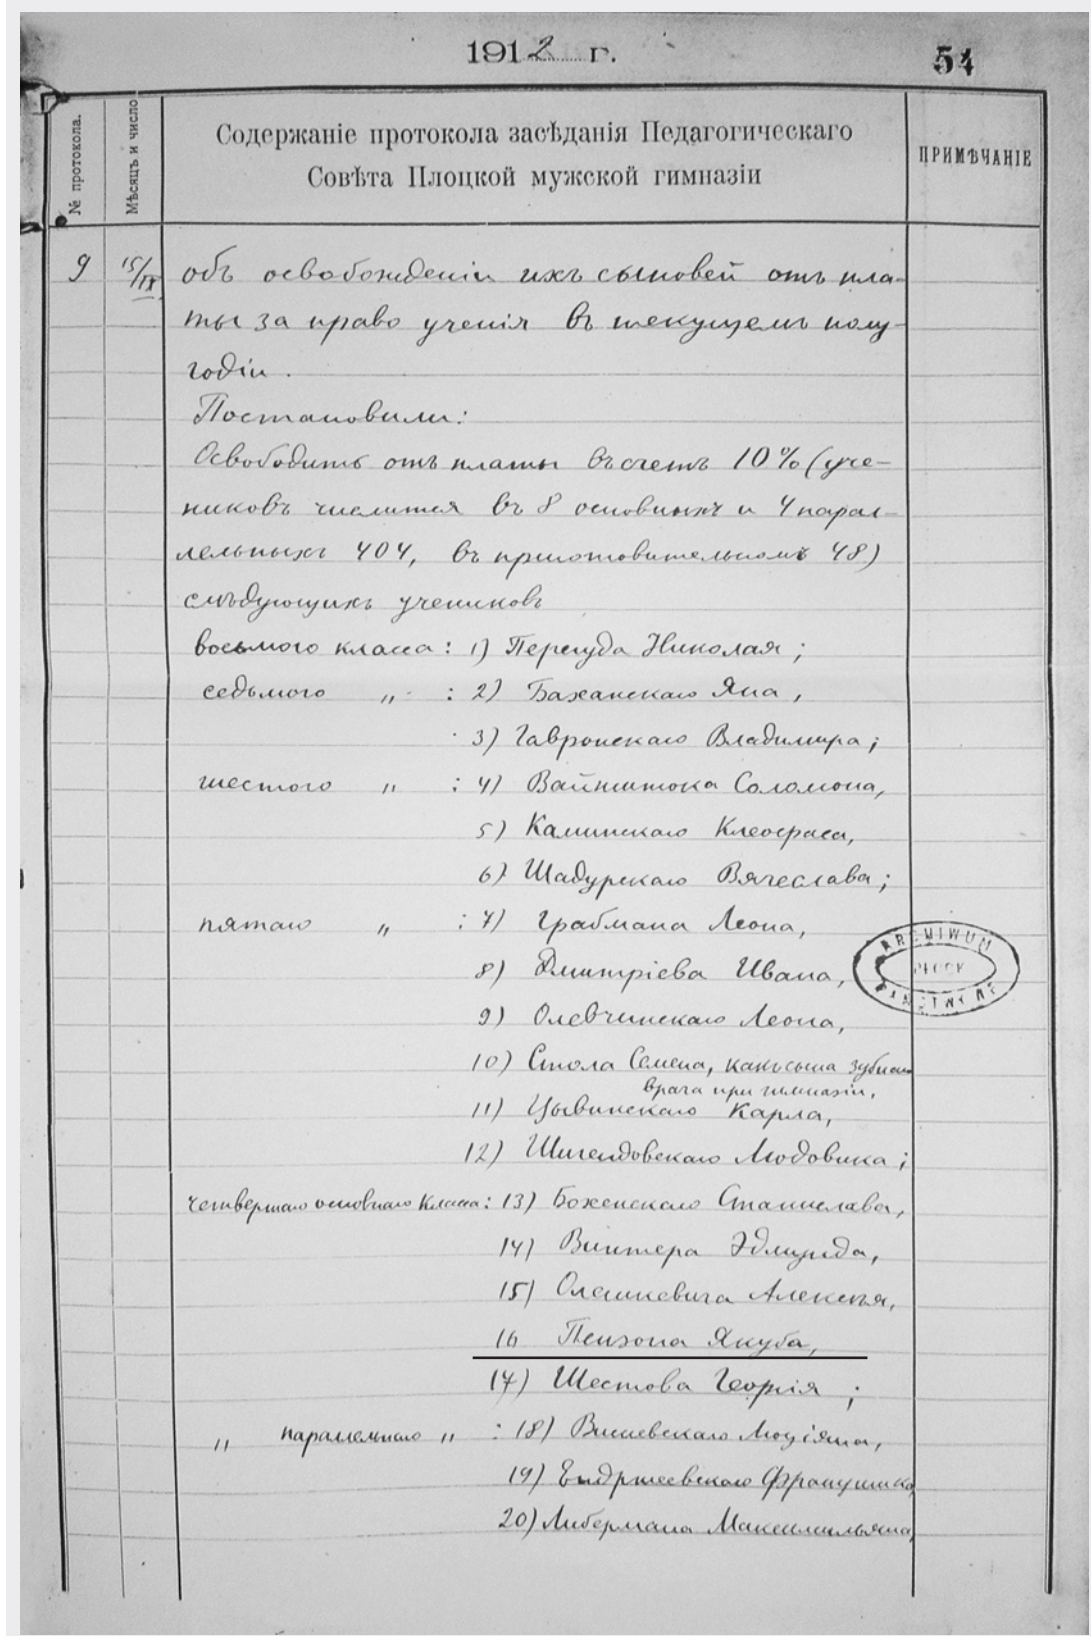 1912 г.
54
№ протокола.
Мѣсяцъ и число
Содержаніе протокола засѣданія Педагогическаго
Совѣта Плоцкой мужской гимназіи
ПРИМѢЧАНІЕ
9 15/IX объ освобожденіи ихъ сыновей отъ пла-
ты за право ученія въ текущемъ полу-
годіи.
Постановили:
Освободить отъ платы въ счетъ 10% (уче-
никовъ числится въ 8 основныхъ и 4 парал-
лельныхъ 404, въ приготовительномъ 48)
слѣдующихъ учениковъ
восьмого класса: 1) Перегуда Николая;
седьмого „ : 2) Баханскаго Яна,
3) Гавронскаго Владимира;
шестого „ : 4) Вайнштока Соломона,
5) Каминскаго Клеофаса,
6) Шадурскаго Вячеслава;
пятаго „ : 7) Грабмана Леона,
8) Дмитріева Ивана,
9) Олевчинскаго Леона,
10) Стола Семена, какъ сына зубного
врача при гимназіи,
11) Цывинскаго Карла,
12) Людовика;
четвертаго основнаго класса: 13) Боженскаго Станислава,
14) Винтера Эдмунда,
15) Олешкевича Алексѣя,
16 Пензона Якуба,
17) Шестова Георгія;
„ параллельнаго „ : 18) Люціяна,
19) Францишка,
20) Либермана Максимильяна,
ARCHIWUM
PŁOCK
PAŃSTWOWE